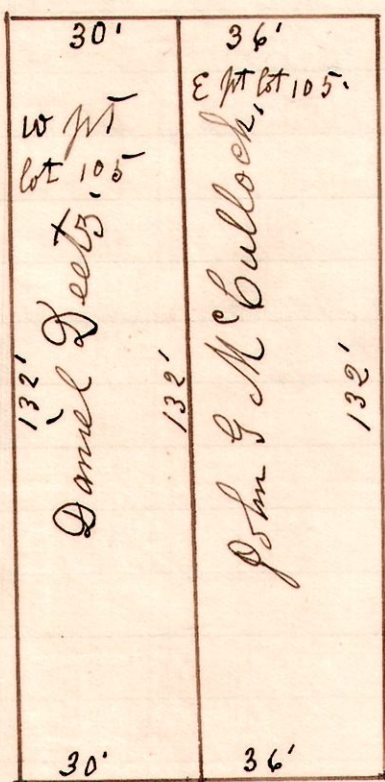 30'
W pt
lot 105
Daniel Deetz.
132'
132'
30'
36'
E pt lot 105.
John G McCullock,
132'
36'